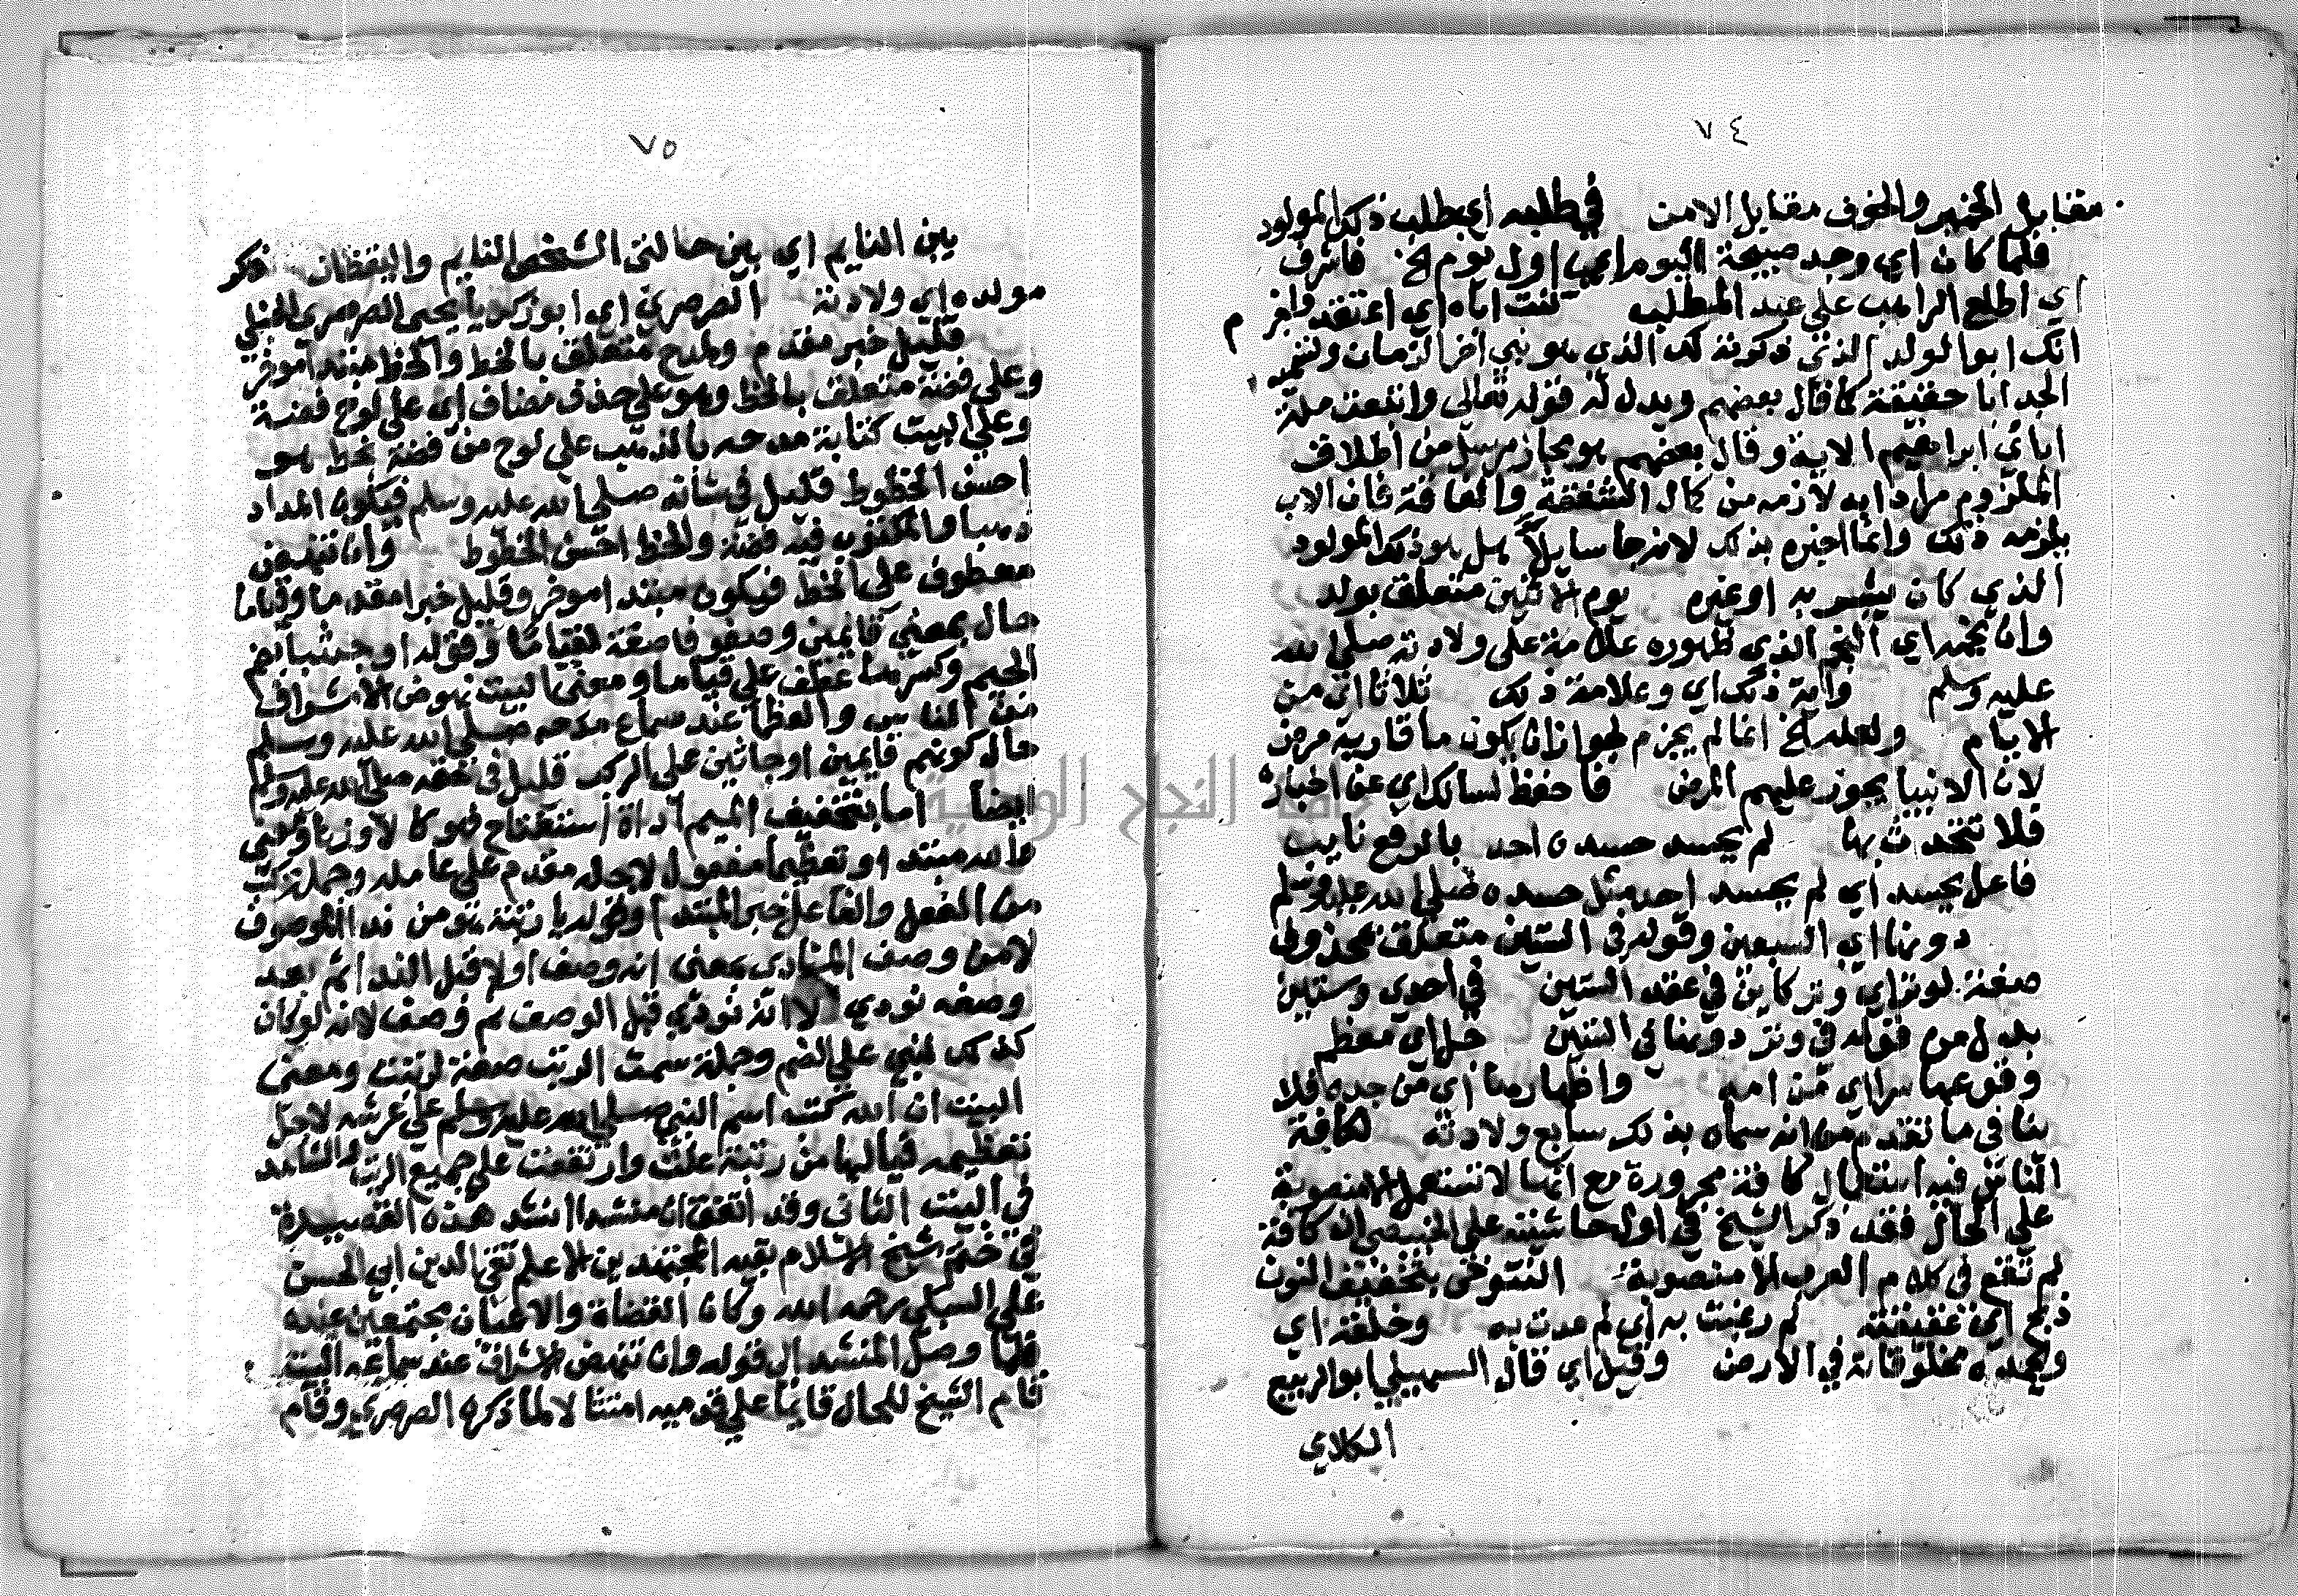 ٧٤
مقابل الخير والخوف مقابل الامن في طلبه اي بطلب ذلك المولود
فلما كان اي وجد صبيحة اليوم اي اول يوم الخ فاشرف
اي اطلع الراهب على عبد المطلب كنت اباه اي اعتقد واجزم
انك ابو الولد الذي ذكرته لك الذي هو نبي اخر الزمان وتسمية
الجد ابا حقيقة كما قال بعضهم ويدل له قوله تعالى واتبعت ملة
اباي ابراهيم الاية وقال بعضهم هو مجاز مرسل من اطلاق
الملزوم مرادا به لازمه من كمال الشفقة فان الاب
يلزمه ذلك وانما اخبره بذلك لانه جا سايلا هل هو ذلك المولود
الذي كان يبشر به او غيره يوم الاثنين متعلق بولد
وان نجمه اي النجم الذي ظهوره علامة على ولادته صلى الله
عليه وسلم واية ذلك اي وعلامة ذلك ثلاثا اي من
الايام ولعله الخ انما لم يجزم لجواز ان يكون ما قاربه مرض
لان الانبيا يجوز عليهم المرض فاحفظ لسانك اي عن اخباره
فلا تتحدث بها لم يحسد حسده احد بالرفع نايب
فاعل يحسد اي لم يحسد احد مثل حسده صلى الله عليه وسلم
دونها اي السبعين وقوله في الستين متعلق بمحذوف
صفة لوتر اي وتر كاين في عقد الستين في احدى وستين
بدل من قوله في وتر دونها في الستين جل اي معظم
وقوعها سرا اي من امه واظهارها اي من جده فلا
ينافي ما تقدم من انه سماه بذلك سابع ولادته لكافة
الناس فيه استعمال كافة مجرورة مع انها لا تستعمل الا منصوبة
على الحال فقد ذكر الشيخ في اول حاشيته على الخبيصي ان كافة
لم تقع في كلام العرب الا منصوبة التنوخي بتخفيف النون
ذبح اي عقيقته لم رغبت به اي لم عدت به وخلقه اي
ويحمده مخلوقاته في الارض وقيل اي قال السهيلي ابو الربيع
الكلاي
٧٥
بين النايم اي بين حالتي الشخص النايم واليقظان ذكر
مولده اي ولادته الصرصري اي ابو زكريا يحيى الصرصري الحنبلي
قليل خبر مقدم ولمدح متعلق بالخط والخط مبتدا موخر
وعلى فضة متعلق بالخط وهو على حذف مضاف اي على لوح فضة
وعلى البيت كتابة مدحه بالذهب على لوح من فضة بخط هو
احسن الخطوط قليل في شانه صلى الله عليه وسلم فيكون المداد
ذهبا والمكتوب فيه فضة والخط احسن الخطوط وان تنهض
معطوف على الخط فيكون مبتدا موخر وقليل خبرا مقدما وقياما
حال بمعنى قايمين وصفوفا صفة لقياما وقوله او جثيا بضم
الجيم وكسرها عطف على قياما ومعنى البيت نهوض الاشراف
من الناس والعظما عند سماع مدحه صلى الله عليه وسلم
حال كونهم قايمين او جاثين على الركب قليل في حقه صلى الله عليه وسلم
ايضا اما بتخفيف الميم اداة استفتاح فهو كالا وزنا ومعنى
والله مبتدا وتعظيما مفعول لاجله مقدم على عامله وجملة كتب
من الفعل والفاعل خبر المبتدا وقوله يا رتبة هو من ندا الموصوف
لا من وصف المنادى بمعنى انه وصف اولا قبل الندا ثم بعد
وصفه نودي لا انه نودي قبل الوصف ثم وصف لانه لو كان
كذلك لبني على الضم وجملة سمت الرتب صفة لرتبة ومعنى
البيت ان الله كتب اسم النبي صلى الله عليه وسلم على عرشه لاجل
تعظيمه فيا لها من رتبة علت وارتفعت على جميع الرتب والشاهد
في البيت الثاني وقد اتفق ان منشدا انشد هذه القصيدة
في ختم شيخ الاسلام بقية المجتهدين الاعلم تقي الدين ابي الحسن
علي السبكي رحمه الله وكان القضاة والاعيان مجتمعين عنده
فلما وصل المنشد الى قوله وان تنهض الاشراف عند سماعه البيت
قام الشيخ للحال قايما على قدميه امتثالا لما ذكره الصرصري وقام